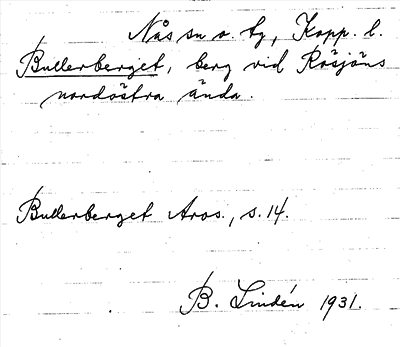 Nås sn o. by, Kopp. l.
Bullerberget, berg vid Råsjöns
nordöstra ända.
Bullerberget Aros., s. 14.
B. Lindén 1931.